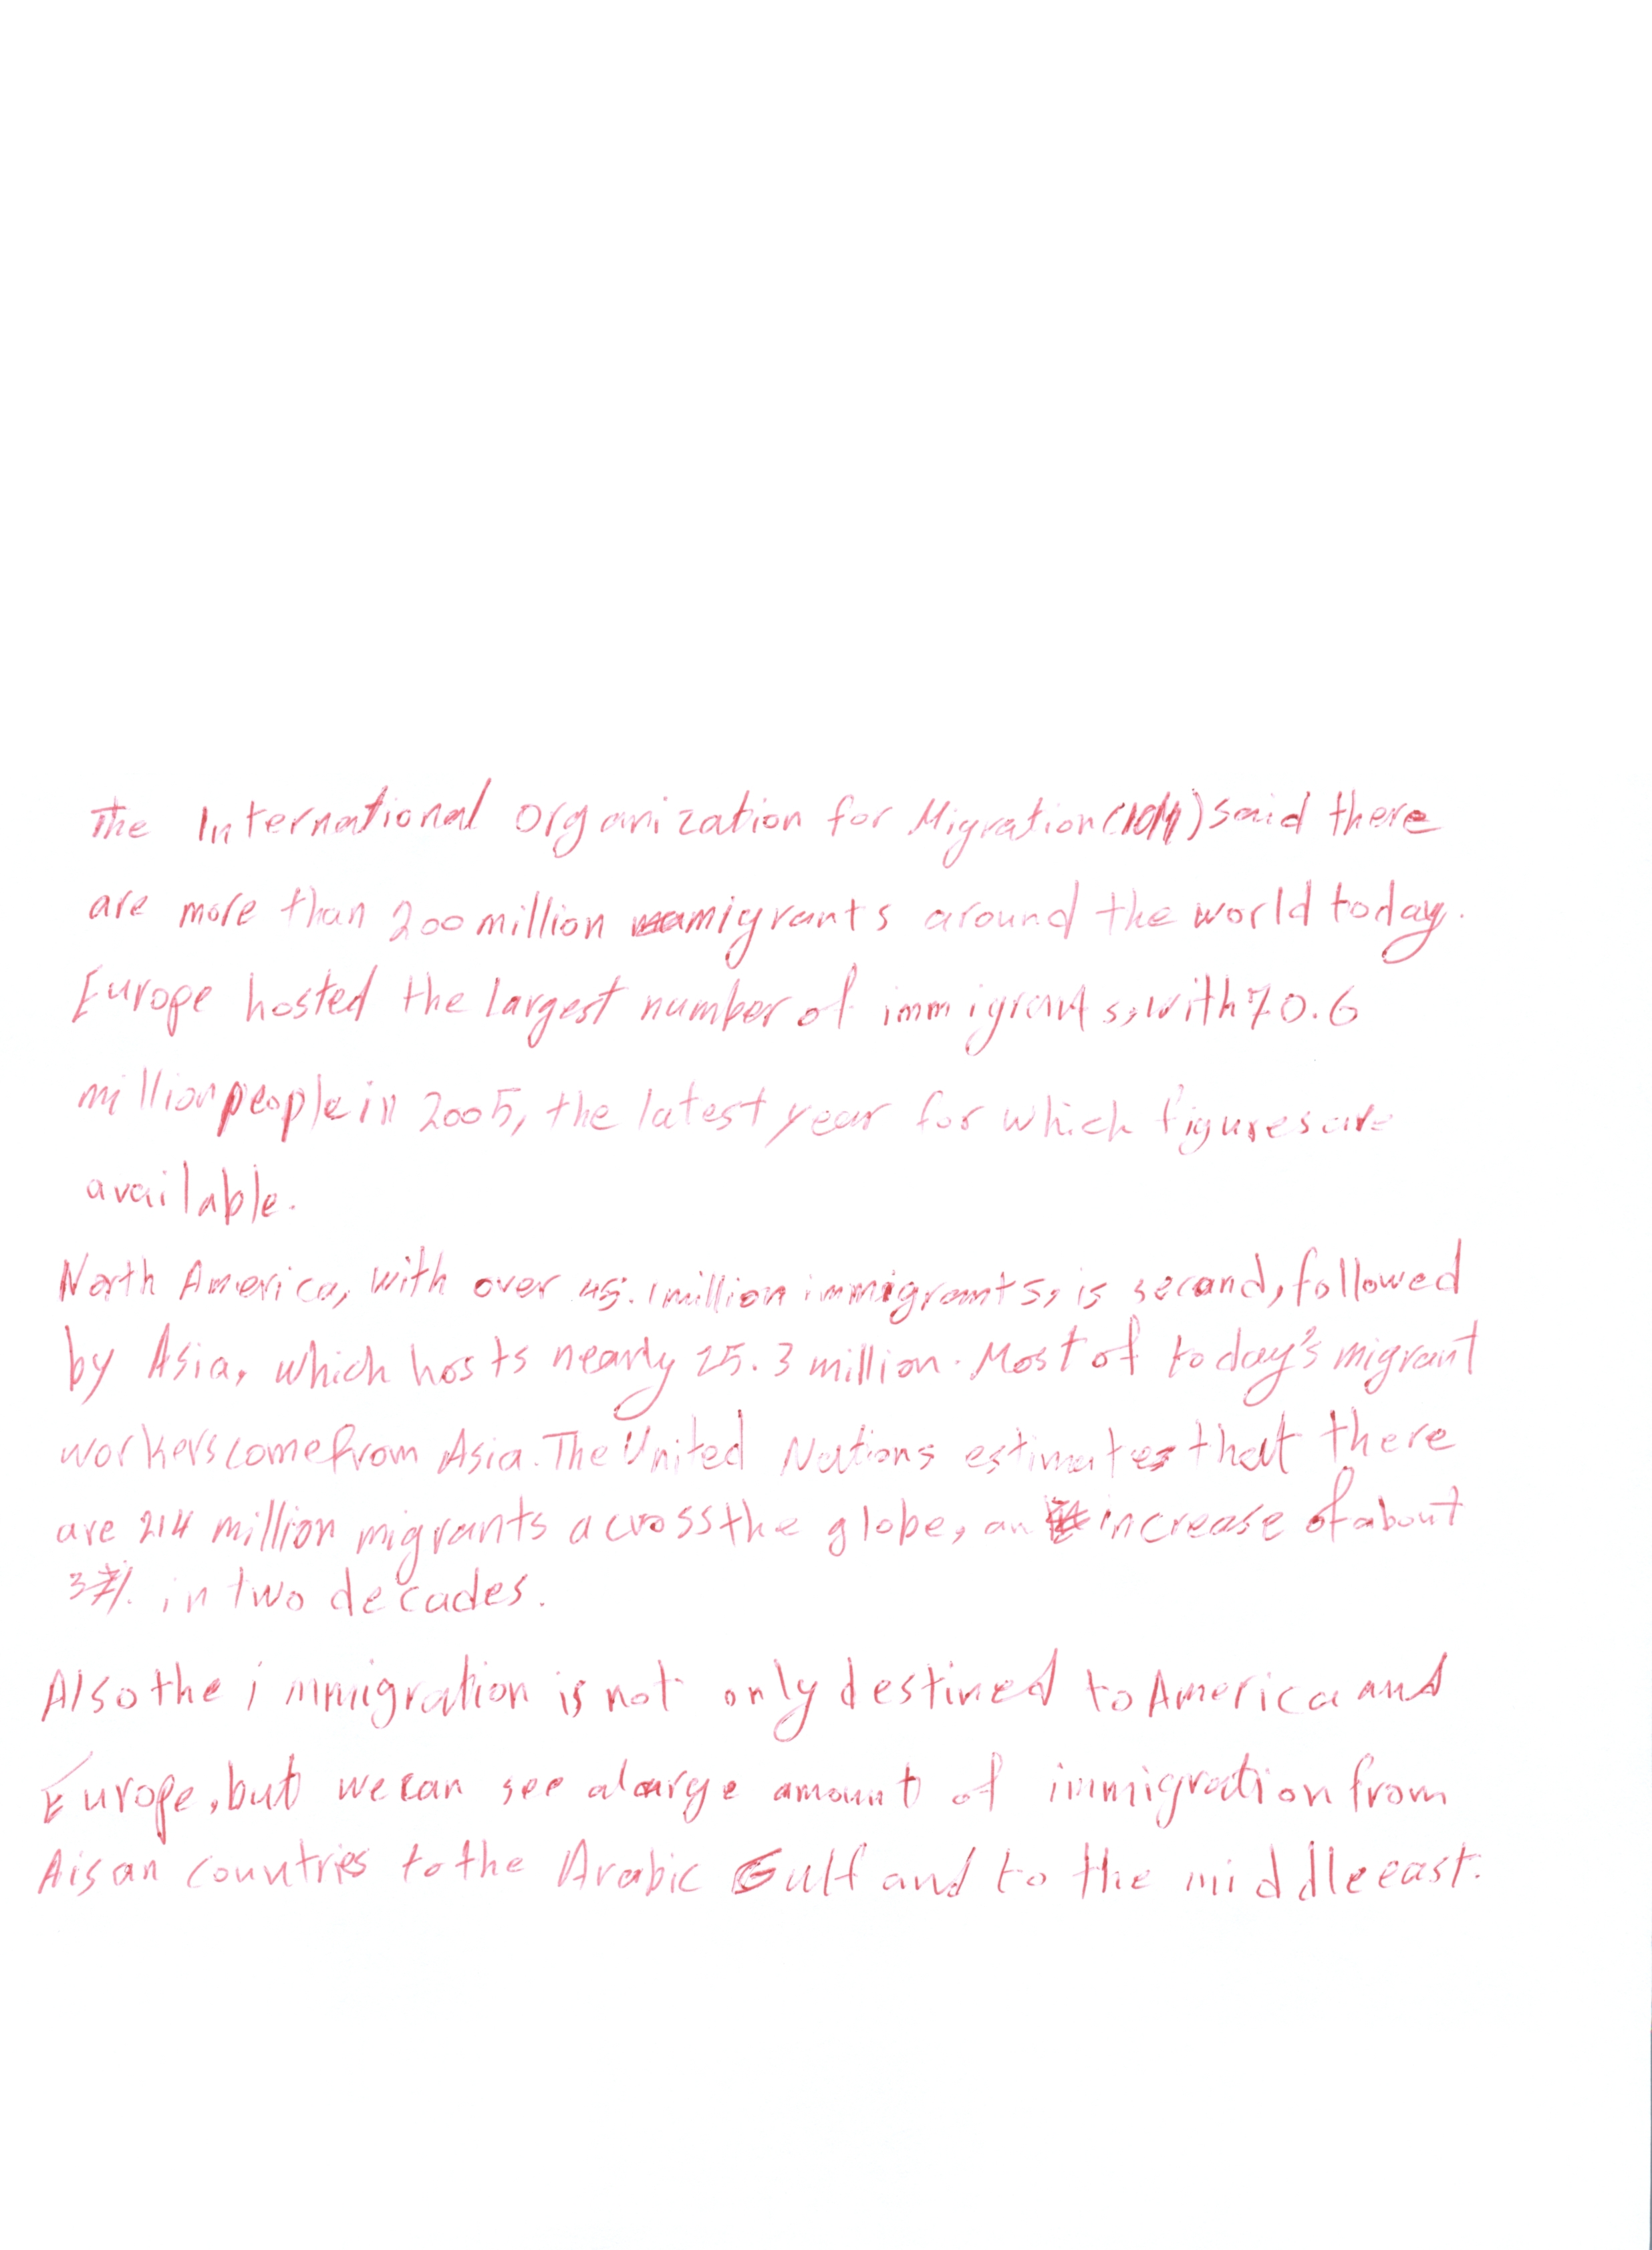 The International Organization for Migration (IOM) said there
are more than 200 million migrants around the world today.
Europe hosted the largest number of immigrants, with 70.6
million people in 2005, the latest year for which figures are
available.
North America, with over 45.1 million immigrants, is second, followed
by Asia, which hosts nearly 25.3 million. Most of today's migrant
workers come from Asia. The United Nations estimates that there
are 214 million migrants across the globe, an increase of about
37% in two decades.
Also the immigration is not only destined to America and
Europe, but we can see a large amount of immigration from
Aisan countries to the Arabic Gulf and to the middle east.